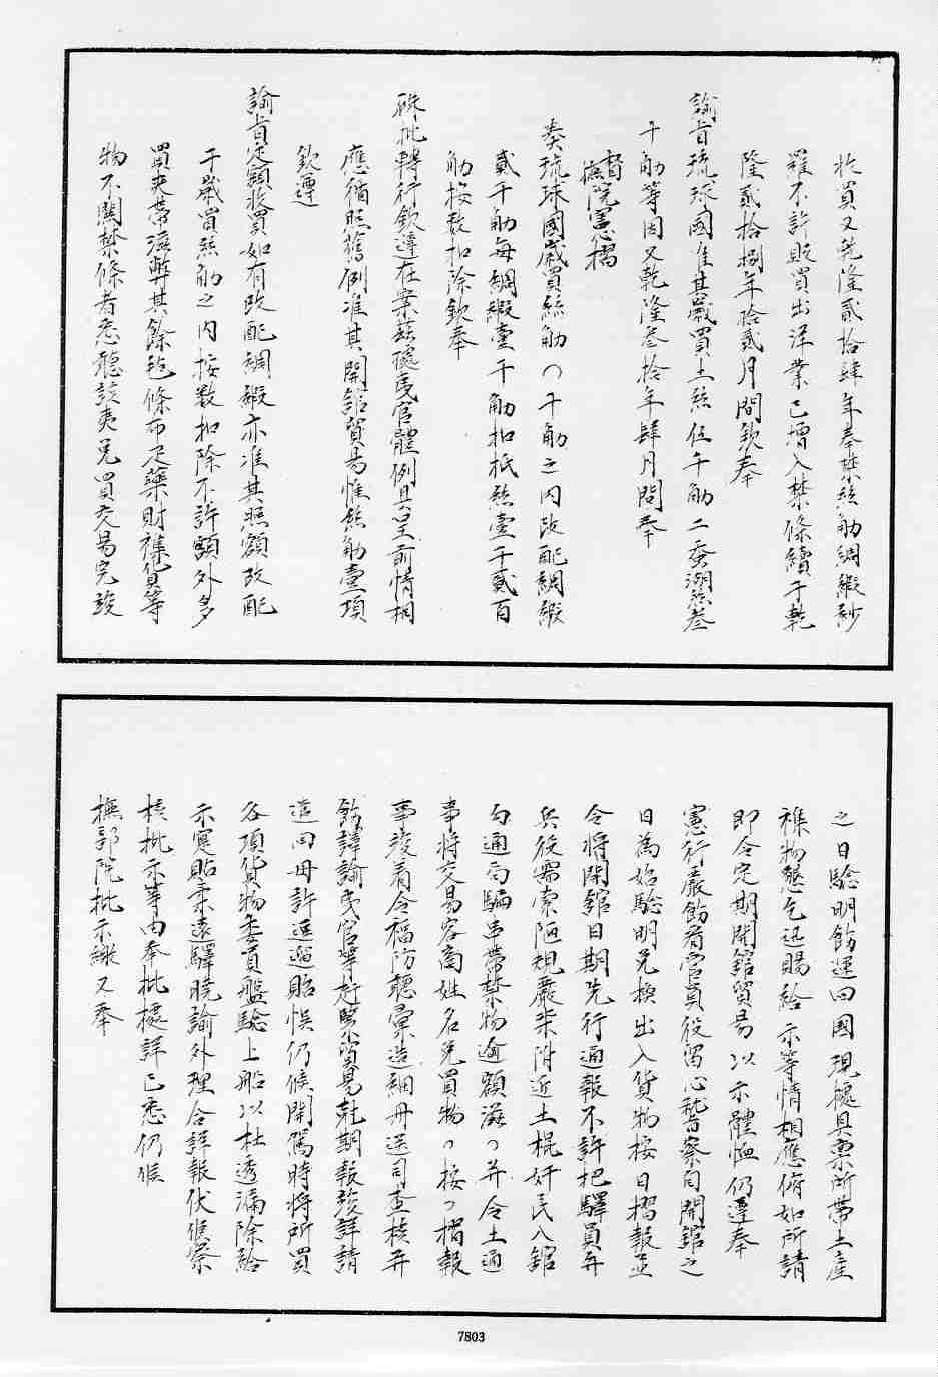 收買又乾隆貳拾肆年奉禁絲觔綢緞紗
羅不許販買出洋業已增入禁條續于乾
隆貳拾捌年拾貳月間欽奉
諭旨琉球國准其歲買土絲伍千觔二蚕湖絲叁
千觔等因又乾隆叁拾年肆月間奉
督撫院憲摺
奏琉球國歲買絲觔八千觔之内改配綢緞
貳千觔每綢緞壹千觔扣抵絲壹千貳百
觔按数扣除欽奉
硃批轉行欽遵在案茲據夷官體例具呈前情相
應循照舊例准其開舘貿易惟絲觔壹項
欽遵
諭旨定額收買如有改配綢緞亦准其照額改配
于歲買絲觔之内按数扣除不許額外多
買夾帶滋弊其餘毡條布疋藥財襍貨等
物不關禁條者悉聽該夷兌買交易完竣
之日驗明飭運回國現據具禀所帶土産
襍物懇乞迅賜給示等情相應俯如所請
即令定期開舘貿易以示體恤仍遵奉
憲行嚴飭看官員役留心稽察自開舘之
日為始驗明兌換出入貨物按日摺報並
令將開舘日期先行通報不許把驛員弁
兵役需索陋規嚴禁附近土棍奸民入舘
勾通局騙串帶禁物逾額滋〻弁令土通
事將交易客商姓名兌買物〻按〻摺報
事竣着令福防聽彙造細册送司查核弁
飭譯諭夷官等赶緊貿易乾期報竣詳請
遣回毋許逗遛貽悞仍候開駕時將所買
各項貨物委員盤驗上船以杜透漏除給
示寔貼柔遠驛曉諭外理合詳報伏候察
核批示等由奉批據詳已悉仍候
撫部院批示繳又奉
7803